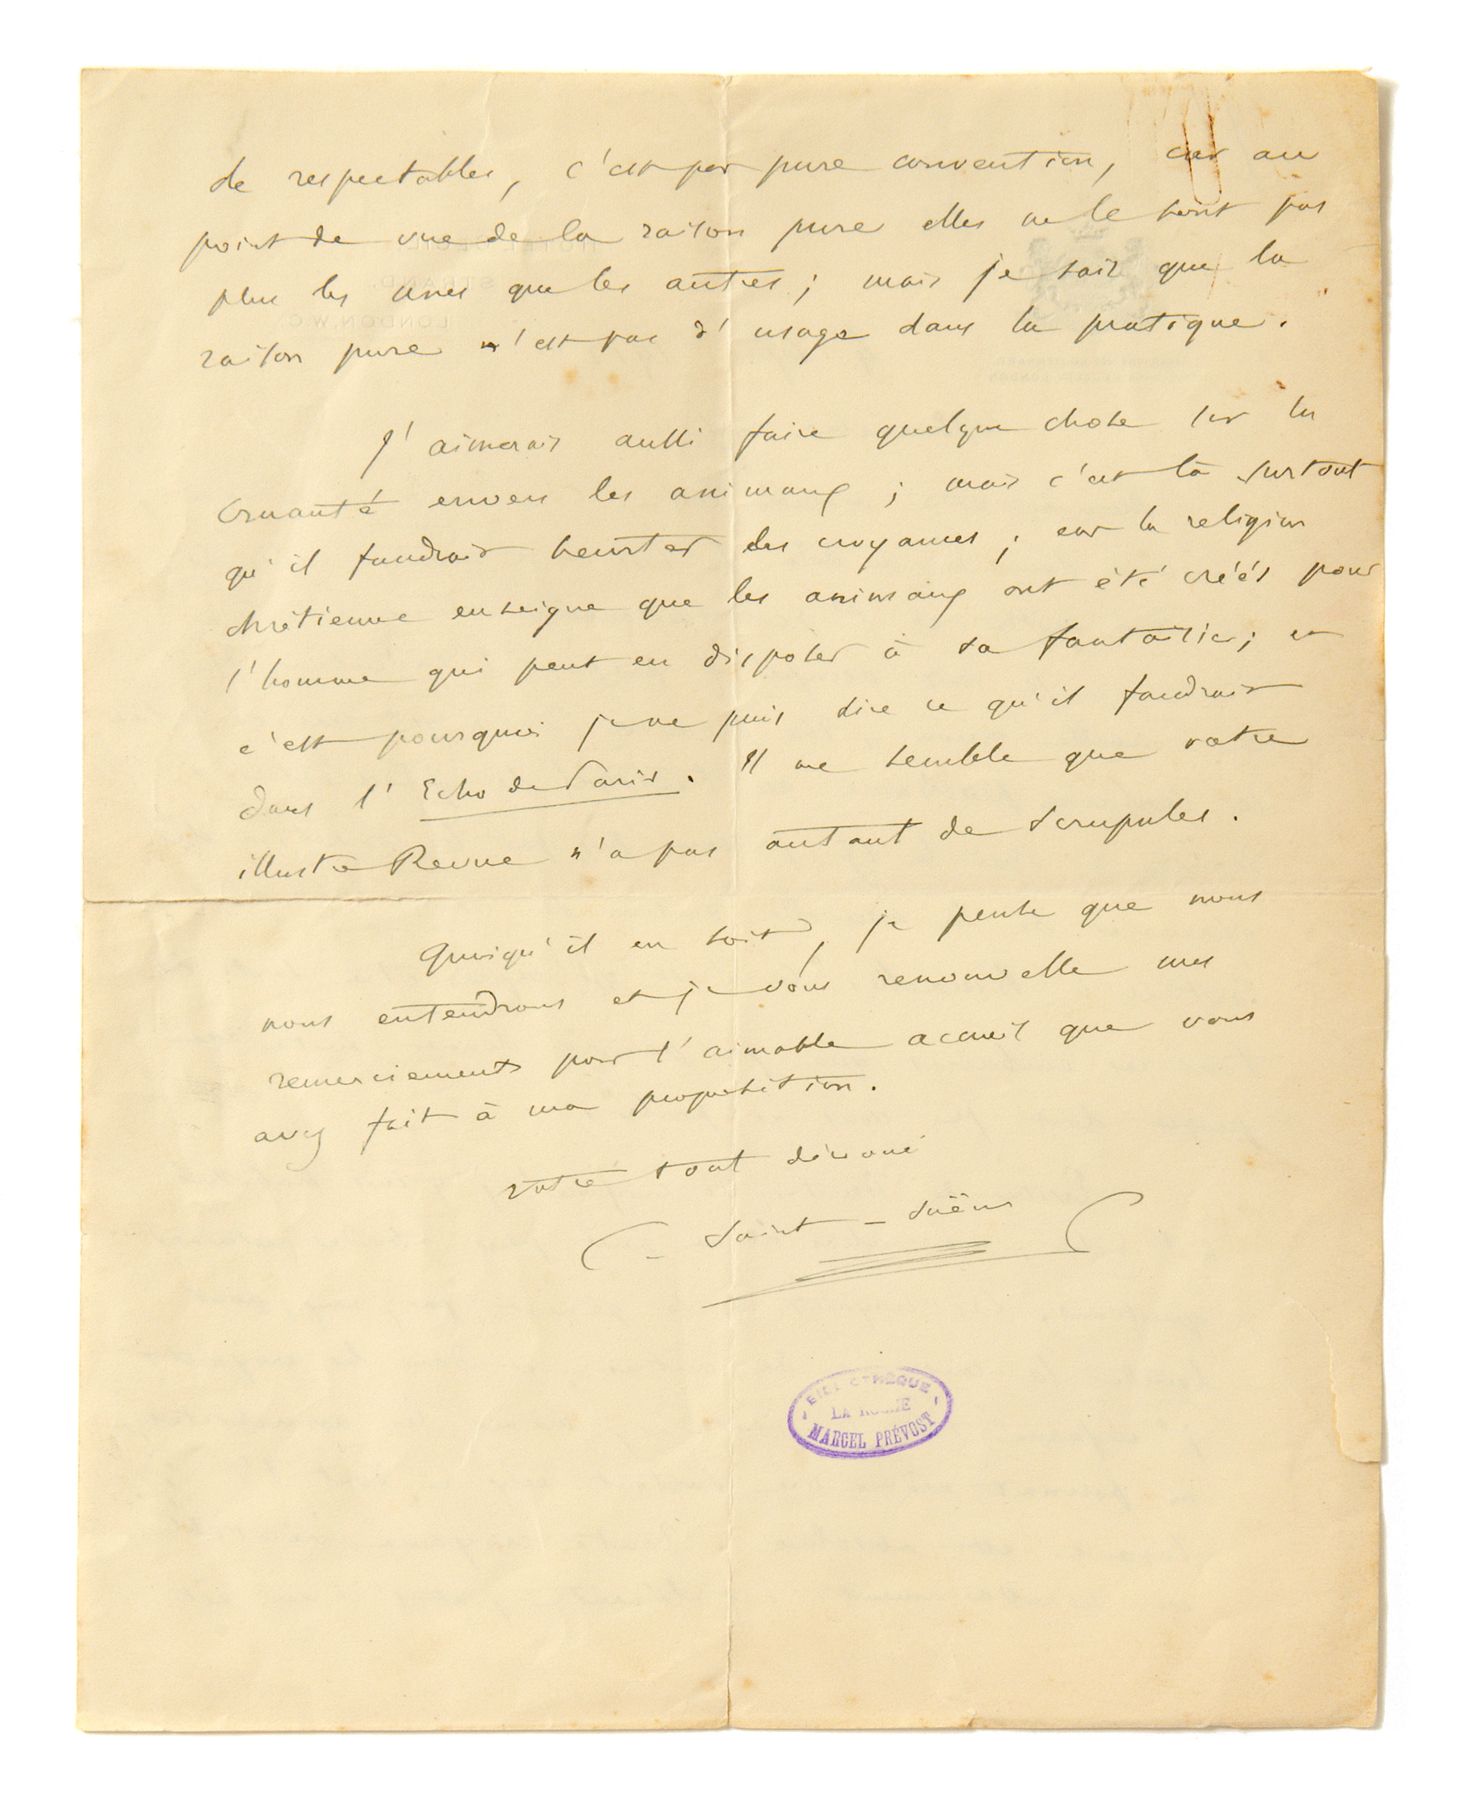 de respectables, c'est par pure convention, car au
point de vue de la raison pure elles ne le sont pas
plus les unes que les autres ; mais je sais que la
raison pure n'est pas d'usage dans la pratique.
J'aimerais aussi faire quelque chose sur la
cruauté envers les animaux ; mais c'est là surtout
qu'il faudrait heurter des croyances ; car la religion
chrétienne enseigne que les animaux ont été créés pour
l'homme qui peut en disposer à sa fantaisie ; et
c'est pourquoi je ne puis dire ce qu'il faudrait
dans l'Echo de Paris. Il me semble que votre
illustre Revue n'a pas autant de scrupules.
Quoiqu'il en soit, je pense que nous
nous entendrons et je vous renouvelle mes
remerciements pour l'aimable accueil que vous
avez fait à ma proposition.
Votre tout dévoué
C. Saint-Saëns
BIBLIOTHÈQUE
LA
MARCEL PRÉVOST
LONDON, W.C.